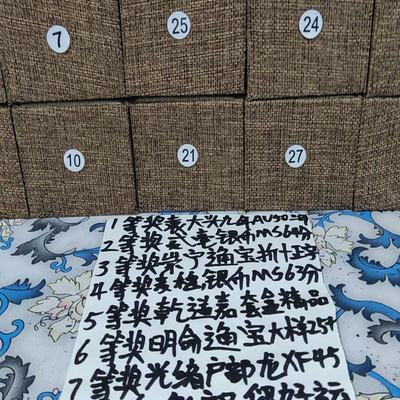 7
25
24
10
21
27
1 等奖袁大头九年AU50
2 等奖 银币MS64分
3 等奖崇宁通宝折十
4 等奖 银币MS63分
5 等奖乾道嘉套金精品
6 等奖明命通宝大样25
7 等奖光绪户部龙XF45
好运